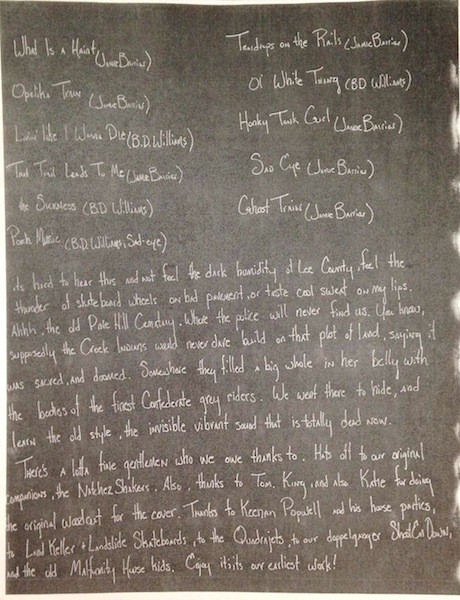 What Is a Haint (Jamie Barrier)
Opelika Train (Jamie Barrier)
Livin' like I Wanna Die (B.D. Williams)
That Trail Leads To Me (Jamie Barrier)
the Sickness (B.D. Williams)
Porch Music (B.D. Williams, Sad-eye)
Teardrops on the Rails (Jamie Barrier)
Ol' White Thang (BD Williams)
Honky Tonk Girl (Jamie Barrier)
Sad Eye (Jamie Barrier)
Ghost Train (Jamie Barrier)
its hard to hear this and not feel the dark humidity of Lee County, feel the
thunder of skateboard wheels on bad pavement, or taste cool sweat on my lips.
Ahhh, the old Pole Hill Cemetary. Where the police will never find us. You know,
supposedly the Creek Indians would never dare build on that plot of land, saying it
was sacred, and doomed. Somewhere they filled a big whole in her belly with
the bodies of the finest Confederate grey riders. We went there to hide, and
learn the old style, the invisible vibrant sound that is totally dead now.
There's a lotta fine gentlemen who we owe thanks to. Hats off to our original
companions, the Natchez Shakers. Also, thanks to Tom King, and also Katie for doing
the original woodcut for the cover. Thanks to Keenan Popwell and his house parties,
to Land Keller + Landslide Skateboards, to the Quadrajets, to our doppelganger Shout Cat Down,
and the old Maternity House kids. Enjoy it its our earliest work!